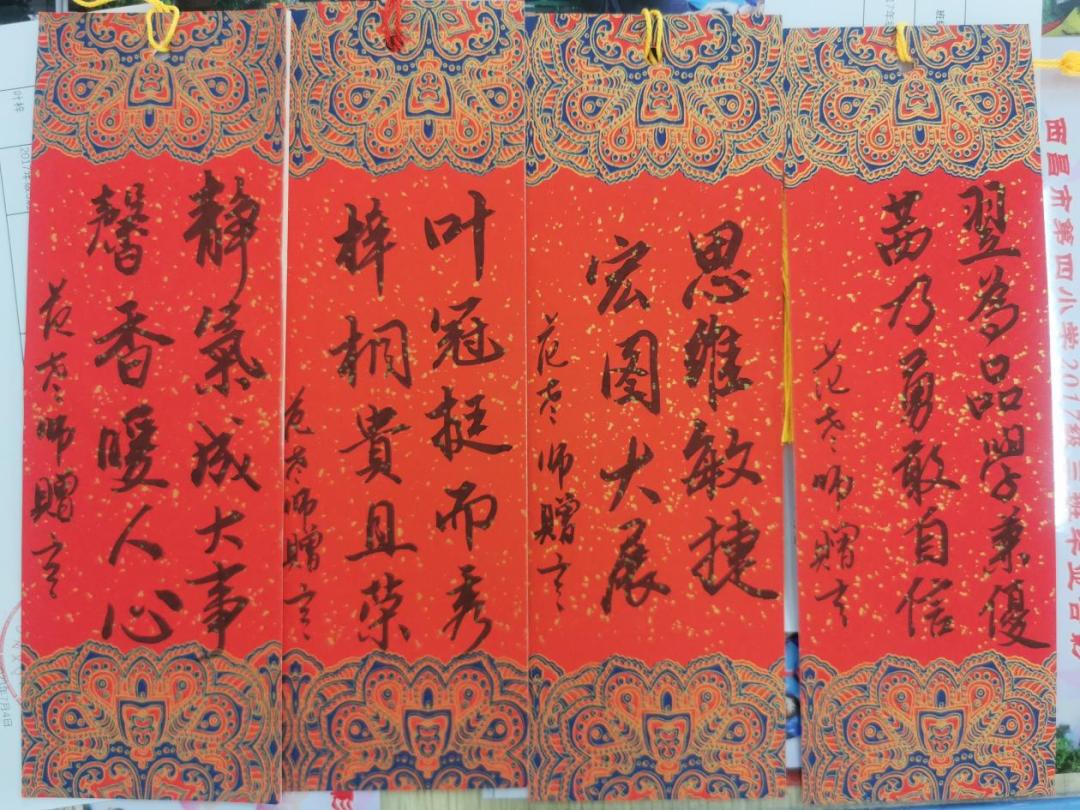 静氣成大事
馨香暖人心
范老师贈言
叶冠挺而秀
梓桐貴且荣
范老师贈言
思维敏捷
宏图大展
范老师贈言
翌為品學兼優
茜乃勇敢自信
范老师贈言
西昌市第四小学2017级三班毕业合影
叶梓